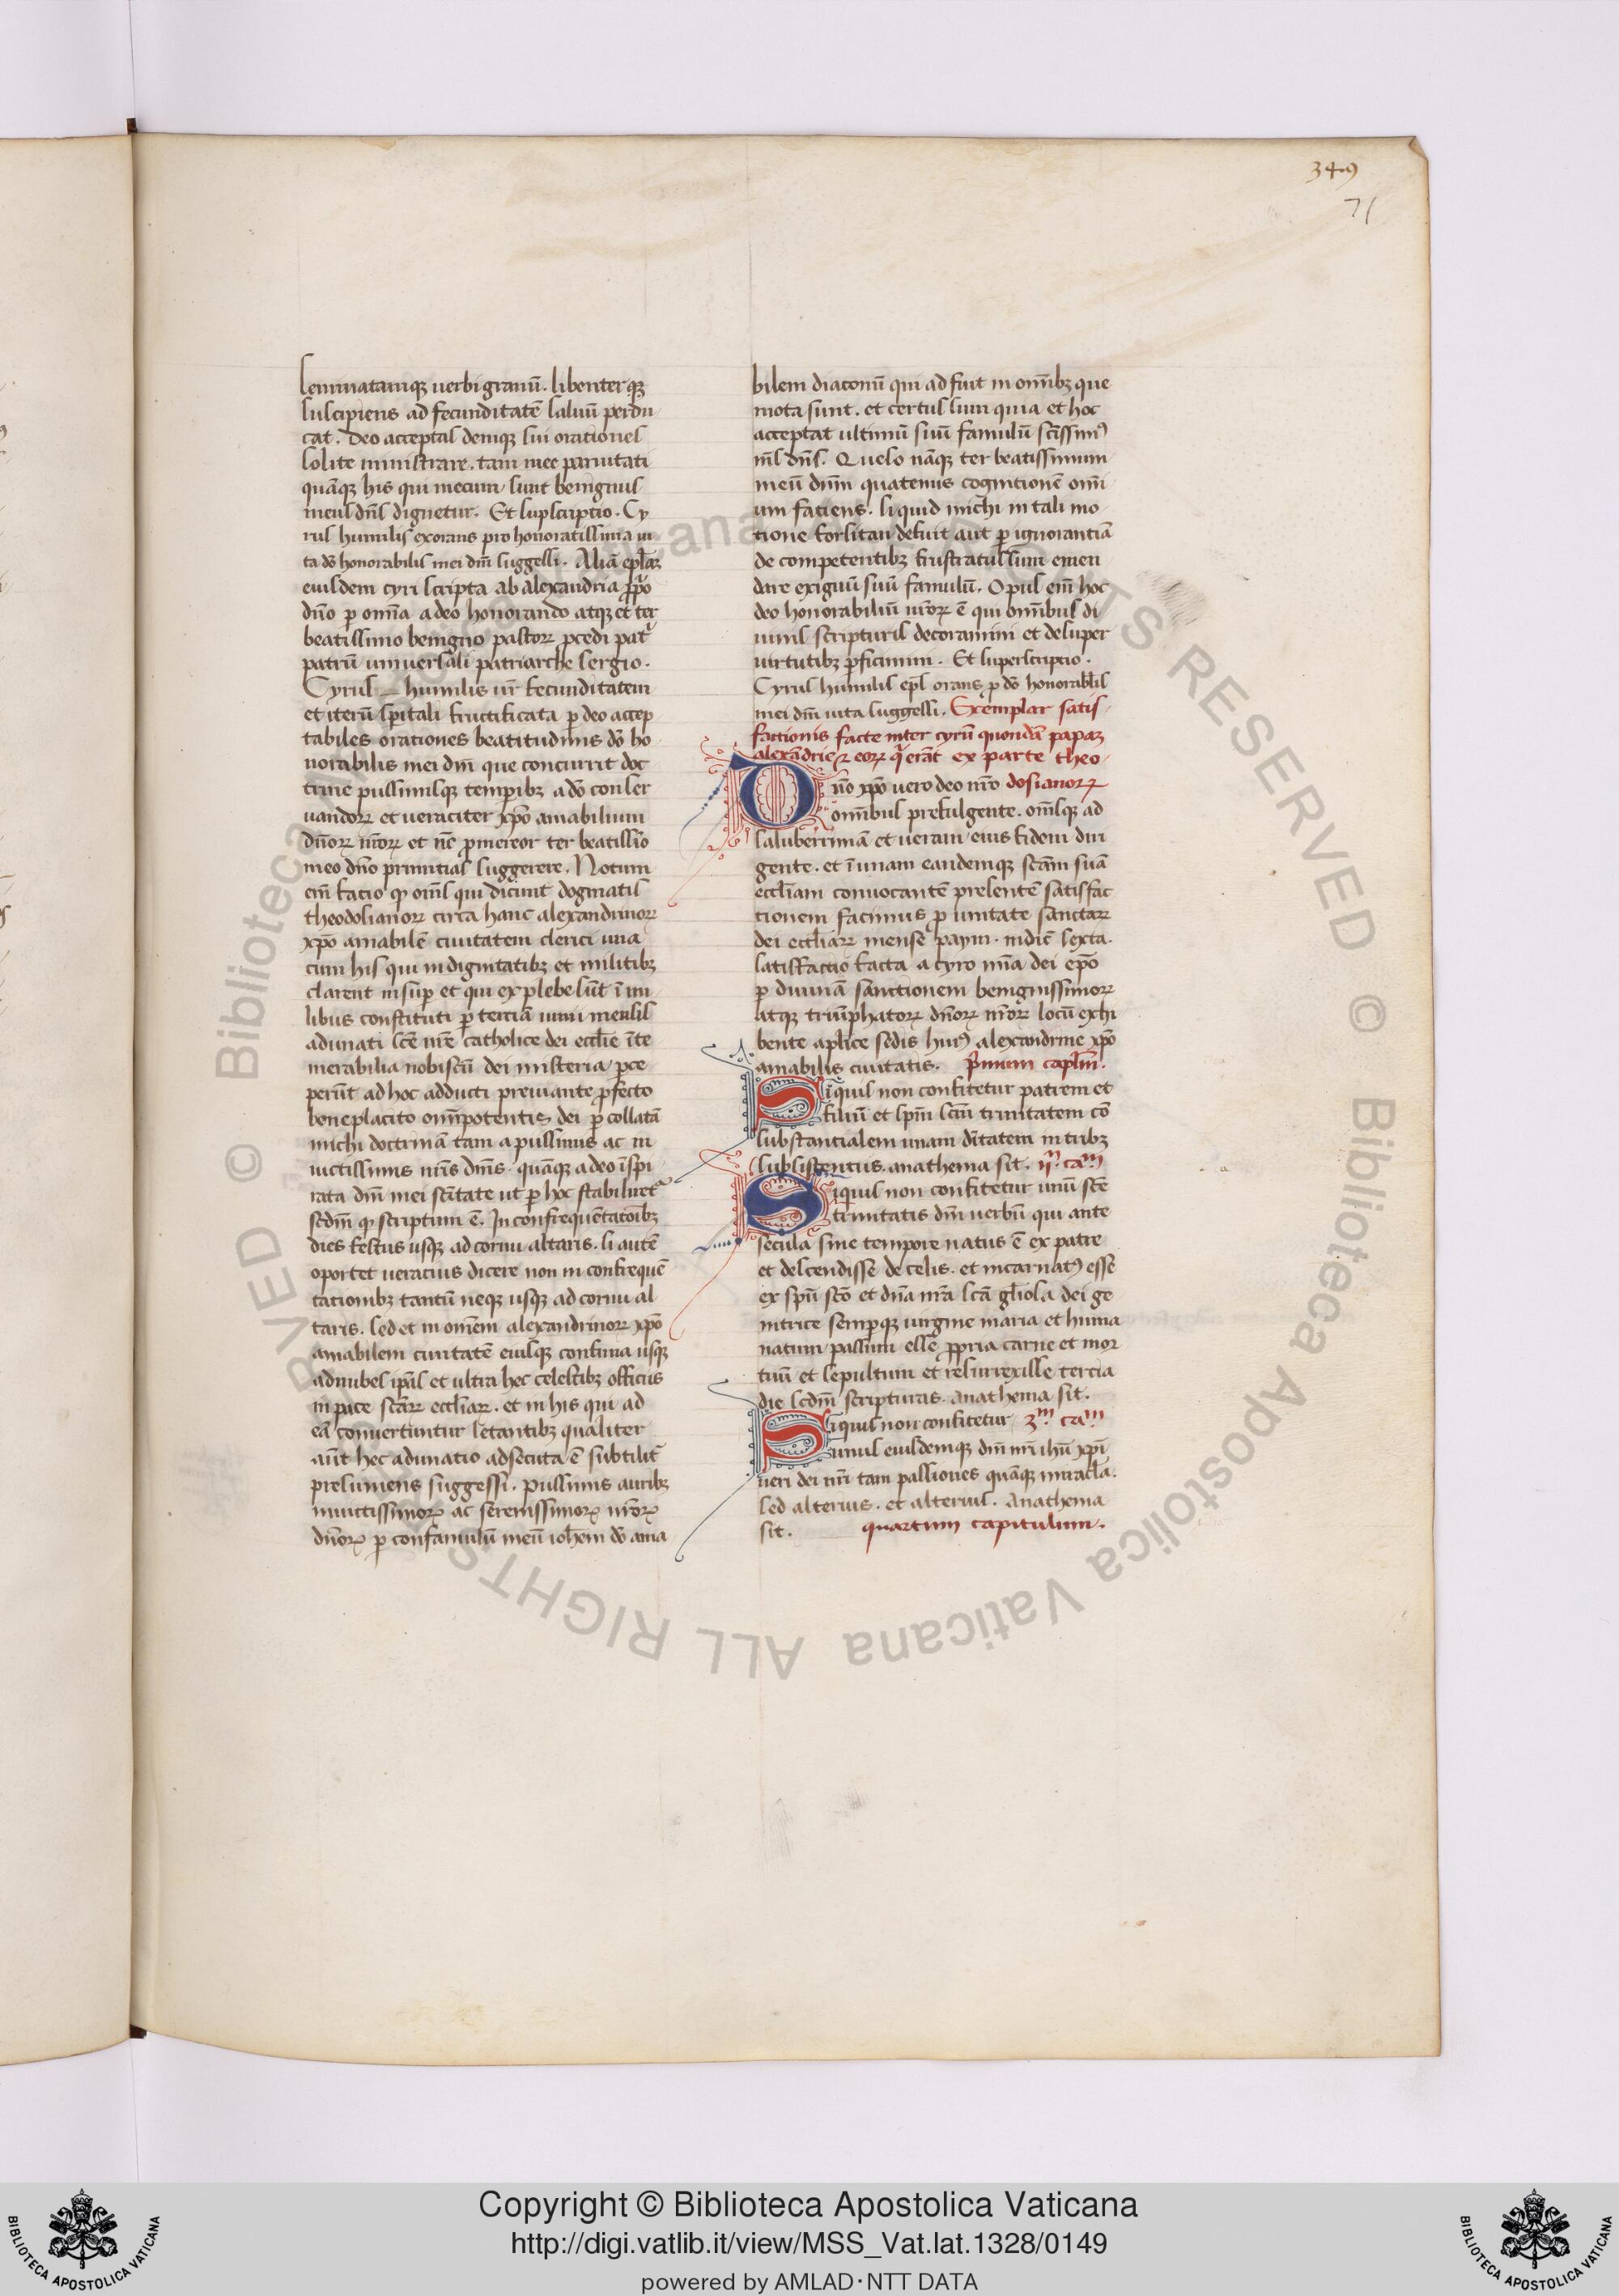 349
71
seminatamque verbi granū. libenterque
suscipiens ad fecunditatē saluū perdu
cat. deo acceptas denique sui orationes
solite ministrare. tam mee paruitati
quāque his qui mecum sunt benignus
meus dn̄s dignetur. Et supscriptio. Cy
rus humilis exorans pro honoratissima ui
ta dō honorabilis mei dn̄i suggessi. Aliā ep̄laꝝ
eiusdem cyri scripta ab alexandria ꝓp̄o
dn̄o ꝑ omīa a deo honorando atque et ter
beatissimo benigno pastoꝝ p̄cedi pat̄
patrū uniuersali patriarche sergio.
Cyrus humilis ur̄ fecunditatem
et iterū sp̄itali fructificata ꝑ deo accep
tabiles orationes beatitudinis dō ho
norabilis mei dn̄i que concurrit doc
trine piissimisque temporibꝫ a dō conser
uandoꝝ et ueraciter xp̄o amabilium
dn̄oꝝ nr̄oꝝ et nc̄ ꝓmereor ter beatissīo
meo dn̄o primitias suggerere. Notum
em̄ facio ꝙ om̄s qui dicunt dogmatis
theodosianoꝝ circa hanc alexandrinoꝝ
xp̄o amabilē ciuitatem clerici una
cum his qui in dignitatibꝫ et militibꝫ
clarent insuꝑ et qui ex plebe sūt ī mi
libus constituti ꝑ terciā iunii mensis
adunati scē nr̄e catholice dei ecc̄lie īte
merabilia nobiscū dei misteria ꝑce
perūt ad hoc adducti preuiante ꝑfecto
beneplacito omīpotentis dei ꝑ collatā
michi doctrinā tam a piissimis ac in
uictissimis nr̄is dn̄is. quāque a deo īspi
rata dn̄i mei sc̄itate ut ꝑ hoc stabiliret᷑
secdm̄ ꝙ scriptum ē. In confrequētatōibꝫ
dies festus usque ad cornu altaris. si autē
oportet ueracius dicere non in confrequē
tationibꝫ tantū neque usque ad cornu al
taris. sed et in omnem alexandrinoꝝ xp̄o
amabilem ciuitatē eiusque confinia usque
ad nubes ip̄as et ultra hec celestibꝫ officiis
in pace sc̄aꝝ ecc̄liaꝝ. et in his qui ad
eā conuertuntur letantibꝫ qualiter
aūt hec adunatio adsecuta ē subtilit̄
presumens suggessi. piissimis auribꝫ
inuictissimoꝝ ac serenissimoꝝ nr̄oꝝ
dn̄oꝝ ꝑ confamulū meū ioh̄em dō ama
bilem diaconū qui ad fuit in omībꝫ que
mota sunt. et certus sum quia et hoc
acceptat ultimū suū famulū sc̄issim᷒
m̄s dn̄s. Queso nāque ter beatissimum
meū dn̄m quatenus cognitionē omī
um faciens. si quid michi in tali mo
tione forsitan defuit aut ꝑ ignorantiā
de competentibꝫ frustratus sum emen
dare exiguū suū famulū. Opus em̄ hoc
deo honorabiliū ur̄oꝝ ē qui omībus di
uinis scripturis decoramini et desuper
uirtutibꝫ ꝑficimini. Et superscriptio.
Cyrus humilis ep̄s orans ꝑ dō honorabilis
mei dn̄i uita suggessi. Exemplar satis
factionis facte inter cyrū quondā papaꝫ
alexādrie ⁊ eoꝝ q̇ erāt ex parte theo
dosianoꝝ
Dn̄o xp̄o uero deo nr̄o
omībus prefulgente. om̄sque ad
saluberrimā et ueram eius fidem diri
gente. et ī unam eandemque sc̄am suā
ecc̄liam conuocantē presentē satisfac
tionem facimus ꝑ unitate sanctaꝝ
dei ecc̄liaꝝ mense payni. indic̄ sexta.
satisfactio facta a cyro mīa dei ep̄o
ꝑ diuinā sanctionem benignissimoꝝ
atque triūphatoꝝ dn̄oꝝ nr̄oꝝ locū exhi
bente ap̄lice sedis hui᷒ alexandrine xp̄o
amabilis ciuitatis. p̄mum cap̄lm̄.
Siquis non confitetur patrem et
filiū et sp̄m sc̄m trinitatem cō
substantialem unam dītatem in tribꝫ
subsistentiis. anathema sit. ijm caᵐ
Siquis non confitetur unū sc̄e
trinitatis dm̄ uerbū qui ante
secula sine tempore natus ē ex patre
et descendisse de celis. et incarnat᷒ esse
ex spū sc̄o et dn̄a nr̄a sc̄a gl̄iosa dei ge
nitrice semperque uirgine maria et huma
natum passum esse ꝓpria carne et mor
tuū et sepultum et resurrexisse tercia
die secdm̄ scripturas. anathema sit.
Siquis non confitetur 3ᵐ caᵐ
unius eiusdemque dn̄i nr̄i ihū xp̄i
ueri dei nr̄i tam passiones quāque miracl̄a.
sed alterius. et alterius. Anathema
sit. quartum capitulum.
Copyright © Biblioteca Apostolica Vaticana
http://digi.vatlib.it/view/MSS_Vat.lat.1328/0149
powered by AMLAD·NTT DATA
BIBLIOTECA APOSTOLICA VATICANA
BIBLIOTECA APOSTOLICA VATICANA
© Biblioteca Apostolica Vaticana ALL RIGHTS RESERVED © Biblioteca Apostolica Vaticana ALL RIGHTS RESERVED